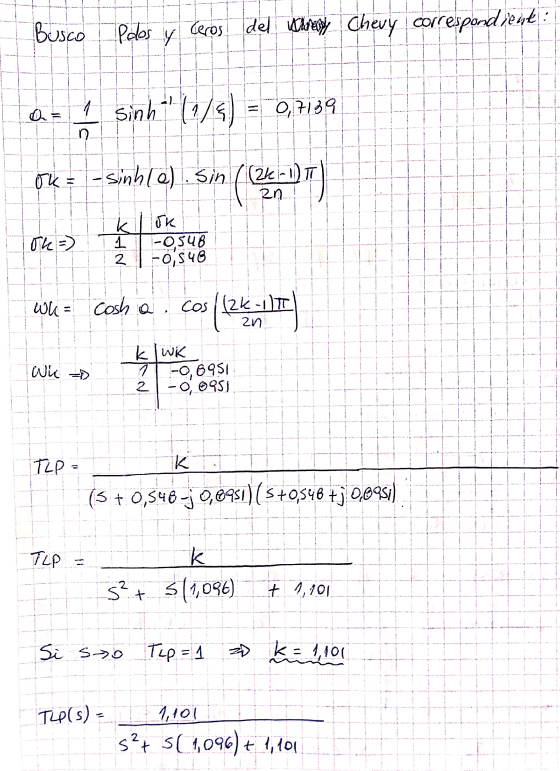 Busco Polos y ceros del Chevy correspondiente:
a = 1/n sinh⁻¹(1/ξ) = 0,7139
σk = -sinh(a) . sin((2k-1)π/2n)
σk => k | σk
1 | -0,548
2 | -0,548
wk = cosh a . cos((2k-1)π/2n)
wk => k | wk
1 | -0,8951
2 | -0,8951
TLP = k / (s + 0,548 - j 0,8951)(s + 0,548 + j 0,8951)
TLP = k / s² + s(1,096) + 1,101
Si s→0 TLP = 1 => k = 1,101
TLP(s) = 1,101 / s² + s(1,096) + 1,101